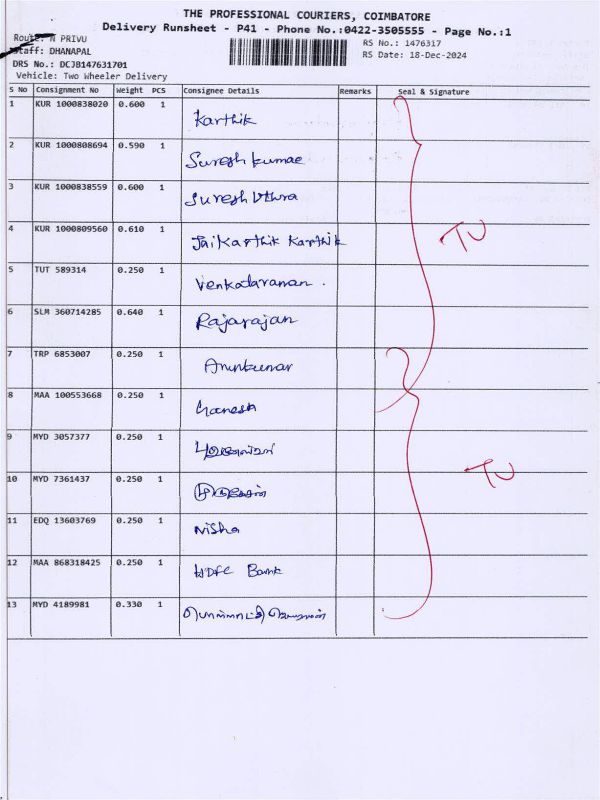 THE PROFESSIONAL COURIERS, COIMBATORE
Delivery Runsheet - P41 - Phone No.:0422-3505555 - Page No.:1
Route: N PRIVU
Staff: DHANAPAL
DRS No.: DCJB147631701
Vehicle: Two Wheeler Delivery
RS No.: 1476317
RS Date: 18-Dec-2024
S No Consignment No Weight PCS Consignee Details Remarks Seal & Signature
1 KUR 1000838020 0.600 1 Karthik
2 KUR 1000808694 0.590 1 Sureshkumae
3 KUR 1000838559 0.600 1 Suresh Uthra
4 KUR 1000809560 0.610 1 Jaikarthik Karthik
TU
5 TUT 589314 0.250 1 Venkataraman .
6 SLM 360714285 0.640 1 Rajarajan
7 TRP 6853007 0.250 1 Arunkumar
8 MAA 100553668 0.250 1 Ganesh
9 MYD 3057377 0.250 1
10 MYD 7361437 0.250 1
TU
11 EDQ 13603769 0.250 1 Nisha
12 MAA 868318425 0.250 1 HDFC Bank
13 MYD 4189981 0.330 1